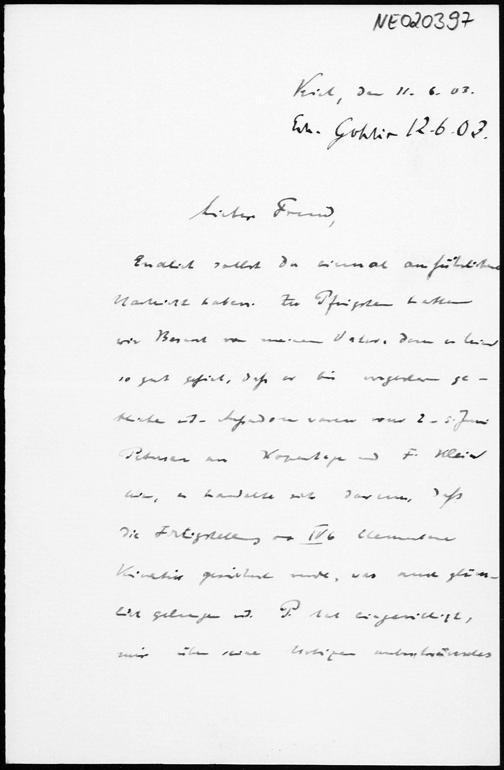 NE020397
Kiel, den 11. 6. 03.
Erh. Göhlis 12.6.03.
Lieber Freund,
Endlich sollst Du einmal ausführlichere
Nachricht haben. Zu Pfingsten hatten
wir Besuch von meinem Vater, dem es hier
so gut gefiel, daß er bis vorgestern ge-
blieben ist. Außerdem waren vom 2-5. Juni
Petersen aus Kopenhagen und F. Klein
hier, es handelte sich darum, daß
die Fertigstellung von IV6 Elementare
Kinetik gesichert werde, was auch glück-
lich gelungen ist. P. hat eingewilligt,
mir über seine